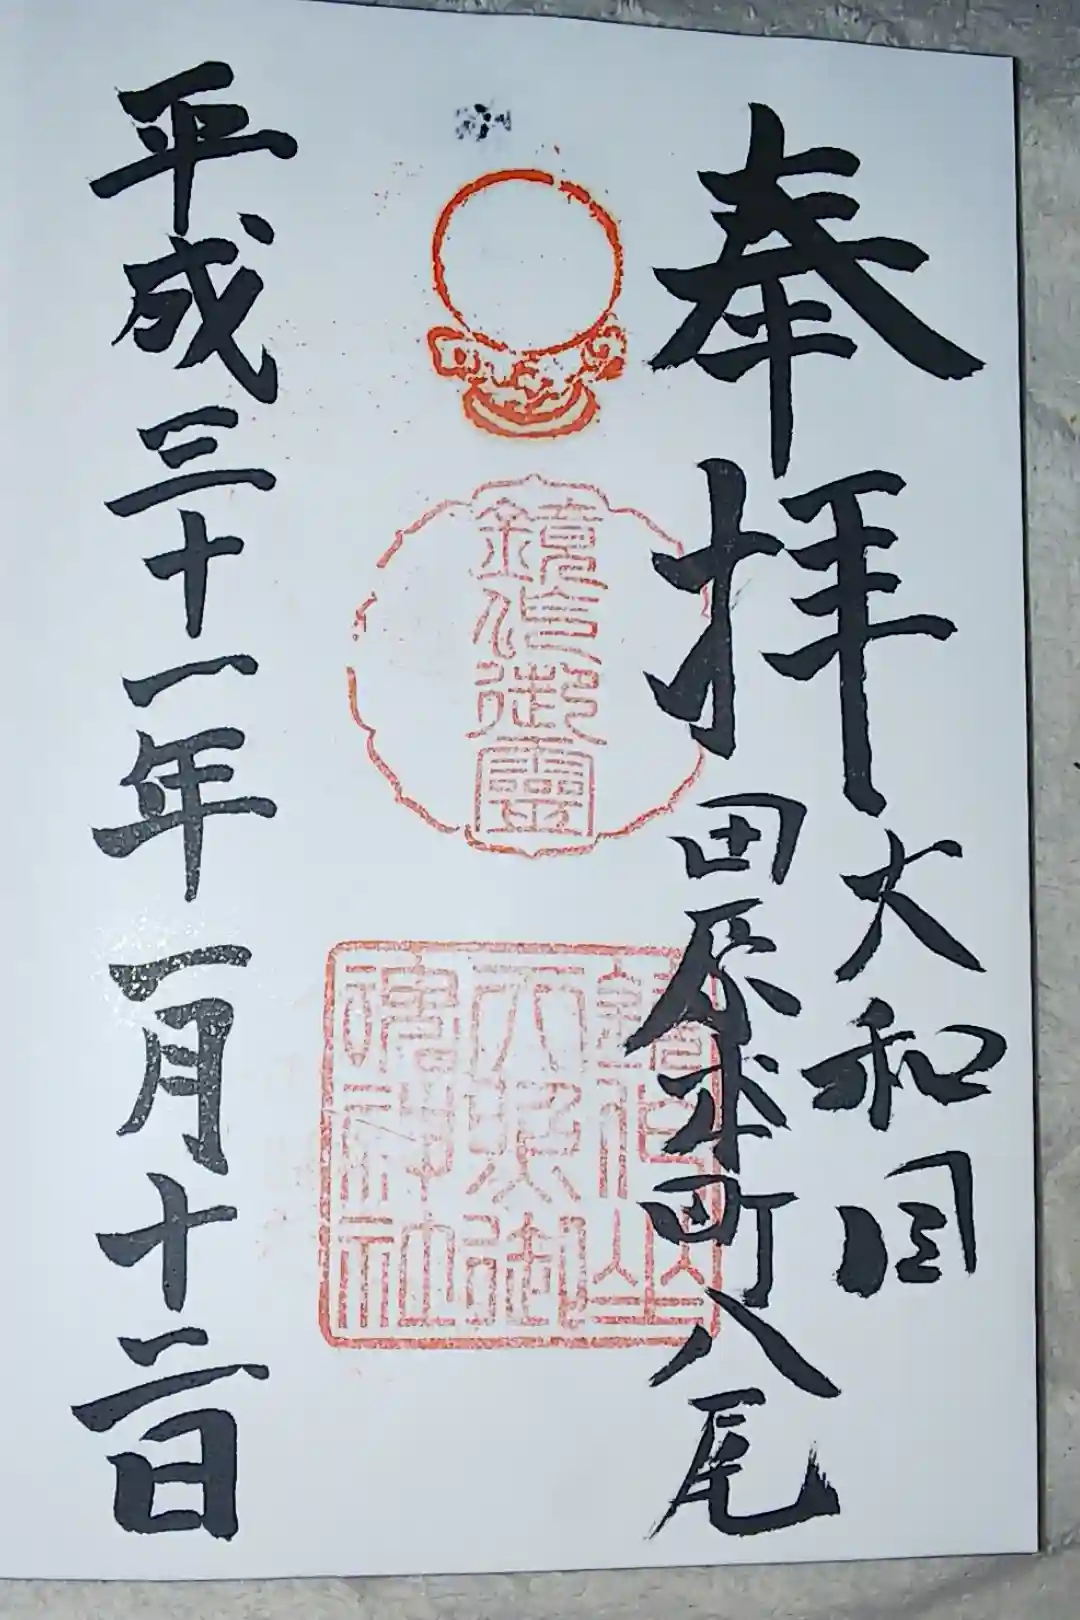 奉拝
大和国
田原本町八尾
鏡作御霊
鏡作坐
天照御
魂神社
平成三十一年一月十二日